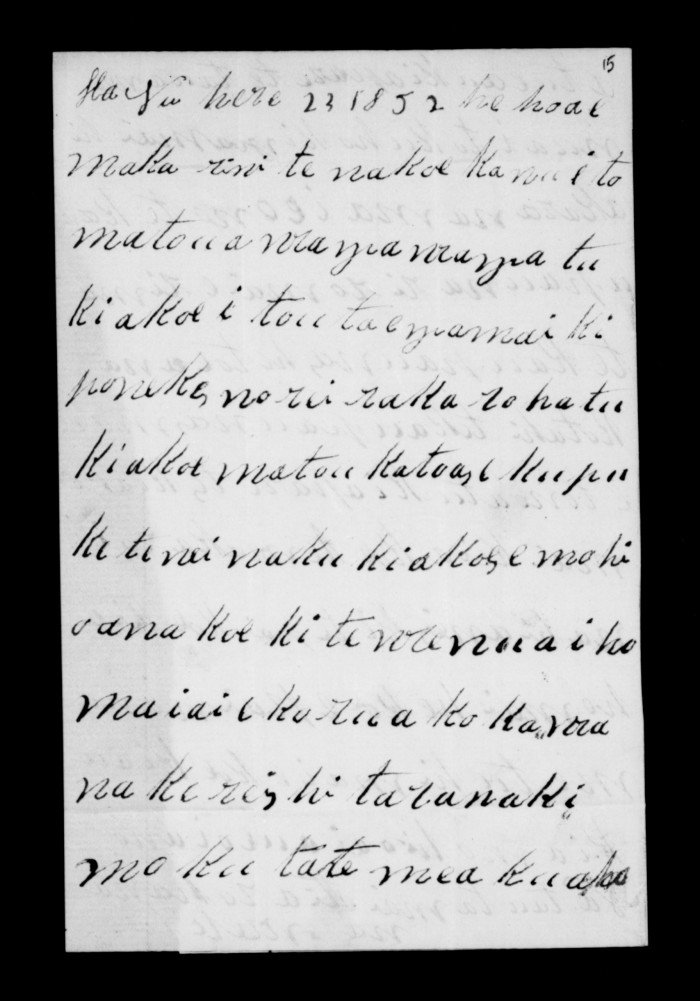 15
here 23 1852 he hoae
maka rini te nakoe ka nui to
matou wawawa tu
kiakoe i tou taeamai ki
poneke, noreira ka roha tu
kiakoe matou katoa, e kupu
ke tenei naku kiakoe, e mohi
oana koe ki te wenua i ho
maiai e korua ko ka, wa
na kereis, hi taranaki,
mo ku tate mea kua